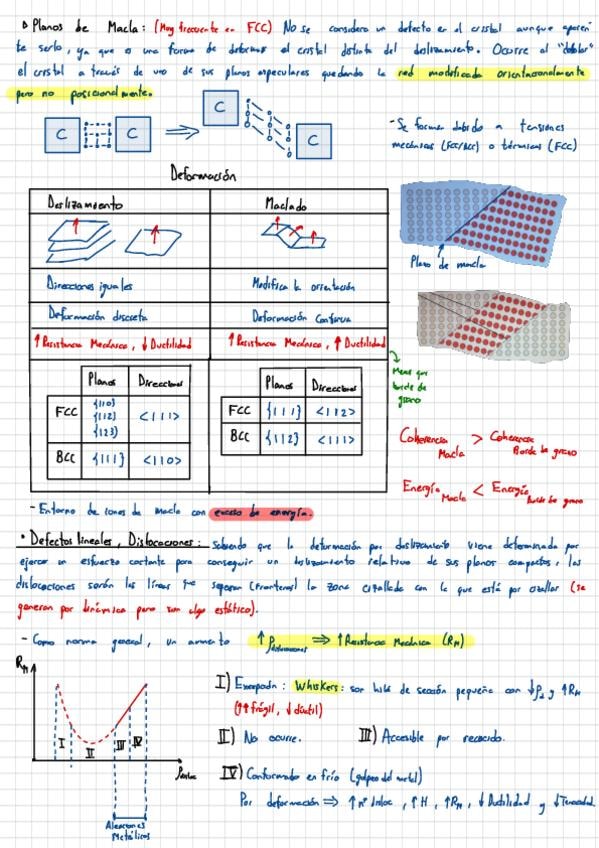 ▷ Planos de Macla: (Muy frecuente en FCC) No se considera un defecto en el cristal aunque aparen
te serlo, ya que es una forma de deformar el cristal distinta del deslizamiento. Ocurre al "doblar"
el cristal a través de uno de sus planos especulares quedando la red modificada orientacionalmente
pero no posicionalmente.
C C ⇒ C C
- Se forman debido a tensiones
mecánicas (FCC/BCC) o térmicas (FCC)
Deformación
Deslizamiento Maclado
Direcciones iguales Modifica la orientación
Deformación discreta Deformación Continua
↑ Resistencia Mecánica, ↓ Ductilidad ↑ Resistencia Mecánica, ↑ Ductilidad
Plano de macla
Menos que
borde de
grano
Planos Direcciones
FCC {110} {112} {123} <111>
BCC {111} <110>
Planos Direcciones
FCC {111} <112>
BCC {112} <111>
Coherencia Macla > Coherencia Borde de grano
Energía Macla < Energía Borde de grano
- Entorno de zonas de macla con exceso de energía.
• Defectos lineales, Dislocaciones: Sabiendo que la deformación por deslizamiento viene determinada por
ejercer un esfuerzo cortante para conseguir un deslizamiento relativo de sus planos compactos, las
dislocaciones serán las líneas que separan (fronteras) la zona cizallada con la que está por cizallar (se
generan por dinámica pero son algo estático).
- Como norma general, un aumento ↑ρ dislocaciones ⇒ ↑ Resistencia Mecánica (RM)
RM
I II III IV
ρdisloc
Aleaciones
Metálicas
I) Excepción: Whiskers: son hilos de sección pequeña con ↓ρd y ↑RM
(↑↑ frágil, ↓ dúctil)
II) No ocurre. III) Accesible por recocido.
IV) Conformado en frío (golpeo del metal)
Por deformación ⇒ ↑ nº disloc, ↑H, ↑RM, ↓ Ductilidad y ↓ Tenacidad.